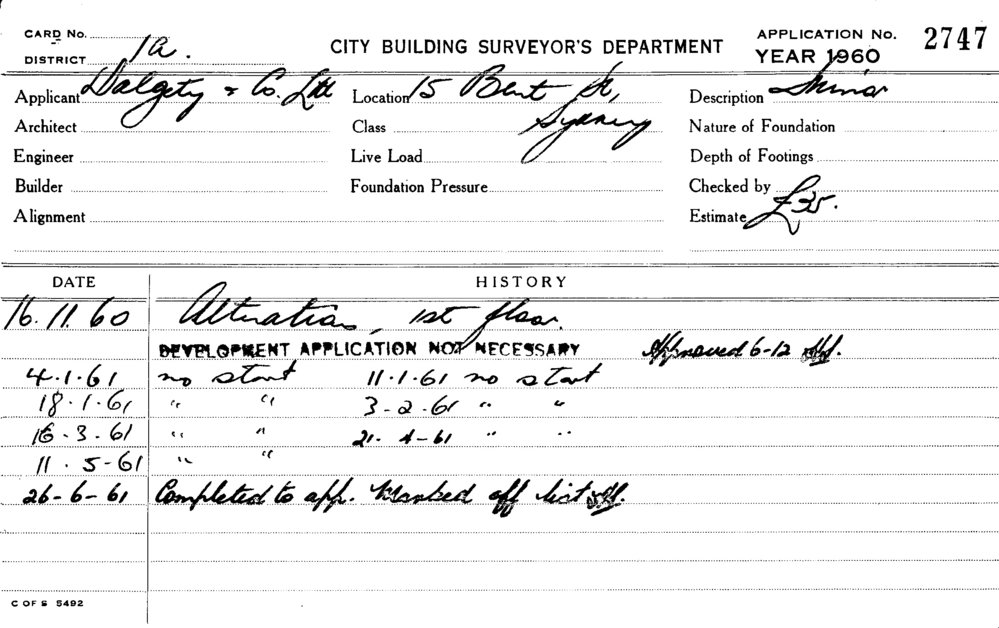 CARD No.
DISTRICT 1a.
CITY BUILDING SURVEYOR'S DEPARTMENT
APPLICATION No. 2747
YEAR 1960
Applicant Dalgety & Co. Ltd Location 15 Bent St, Description Minor
Architect Class Sydney Nature of Foundation
Engineer Live Load Depth of Footings
Builder Foundation Pressure Checked by
Alignment Estimate £35.
DATE HISTORY
16.11.60 Alterations, 1st floor.
DEVELOPMENT APPLICATION NOT NECESSARY Approved 6-12
4.1.61 no start 11.1.61 no start
18.1.61 " " 3-2-61 " "
16-3-61 " " 21-4-61 " "
11.5-61 " "
26-6-61 Completed to app. Marked off list
C OF S 5492